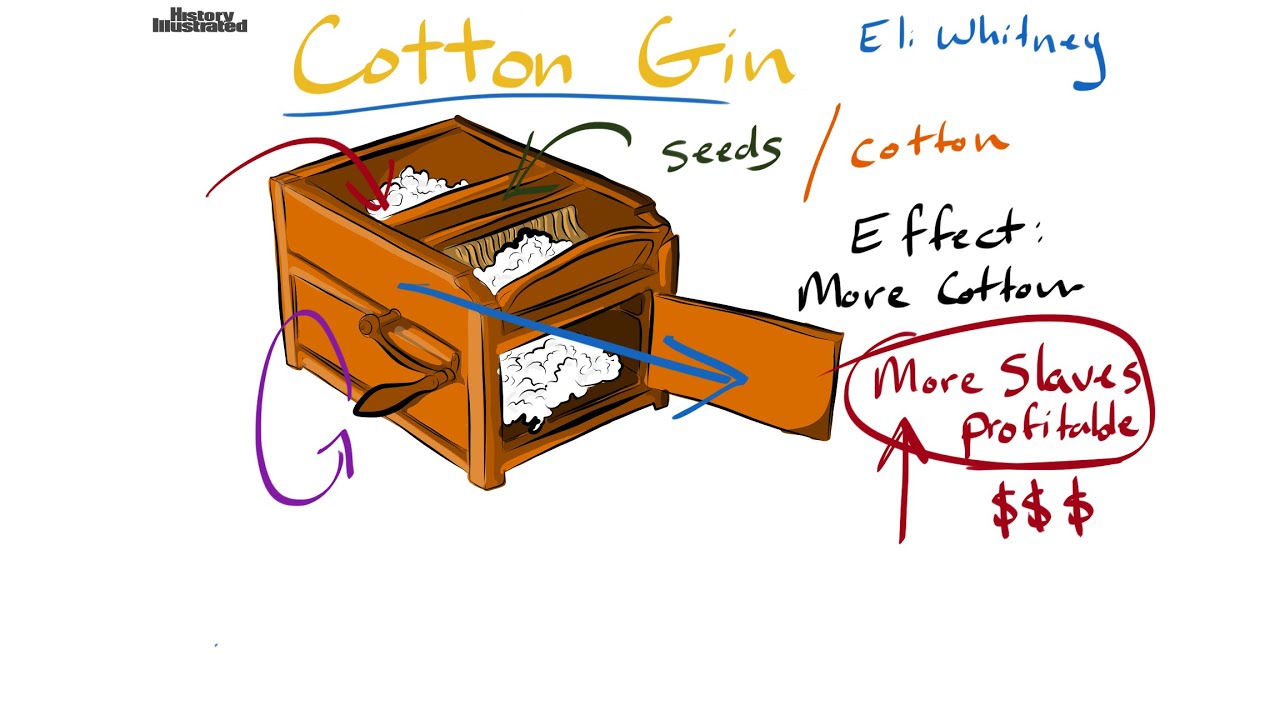 History
Illustrated
Cotton Gin
Eli Whitney
seeds / cotton
Effect:
More Cotton
More Slaves
profitable
$$$